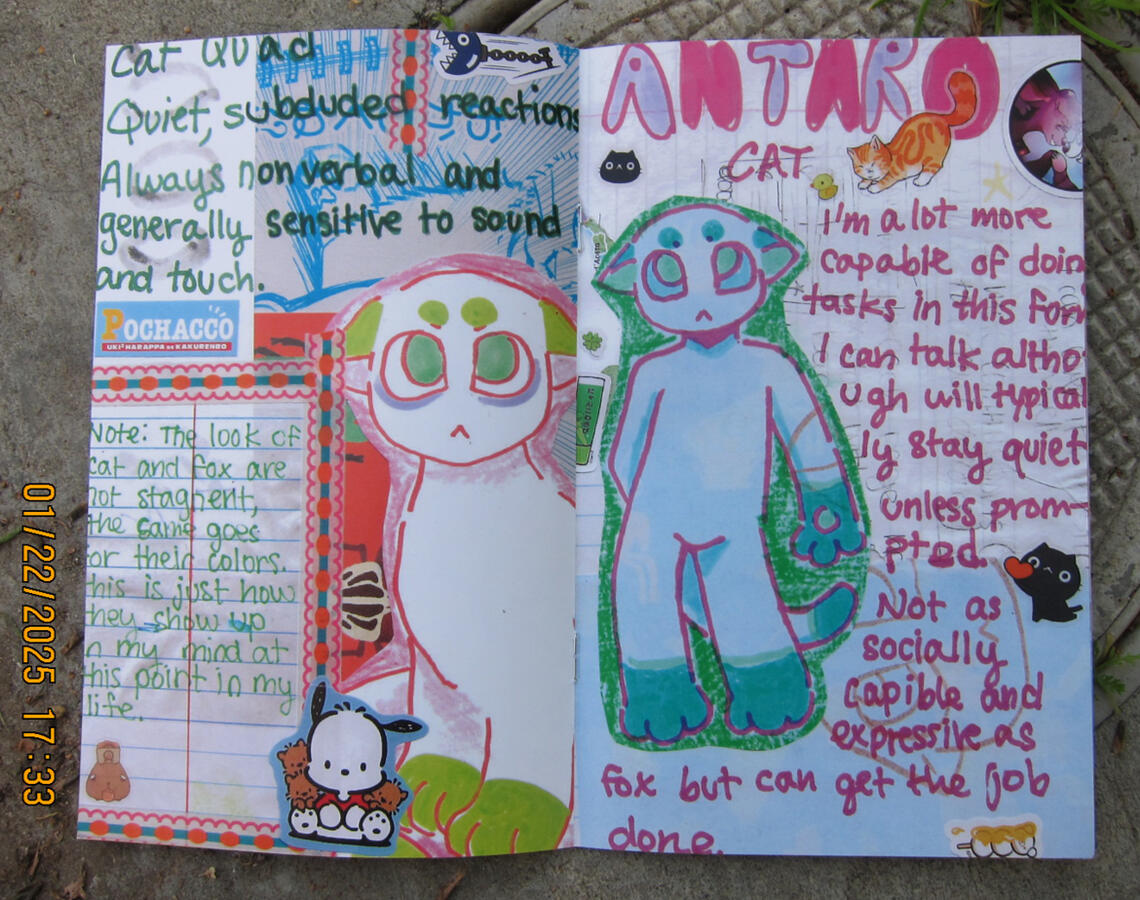 Cat Quad
Quiet, subduded reactions
Always nonverbal and
generally sensitive to sound
and touch.
POCHACCO
UKI²HARAPPA DE KAKURENBO
Note: The look of
cat and fox are
not stagnent,
the same goes
or their colors.
this is just how
they show up
n my mind at
this point in my
life.
ANTHRO
CAT
I'm a lot more
capable of doin
tasks in this for
I can talk altho
ugh will typical
ly stay quiet
unless prom-
pted.
Not as
socially
capible and
expressive as
fox but can get the job
done.
01/22/2025 17:33